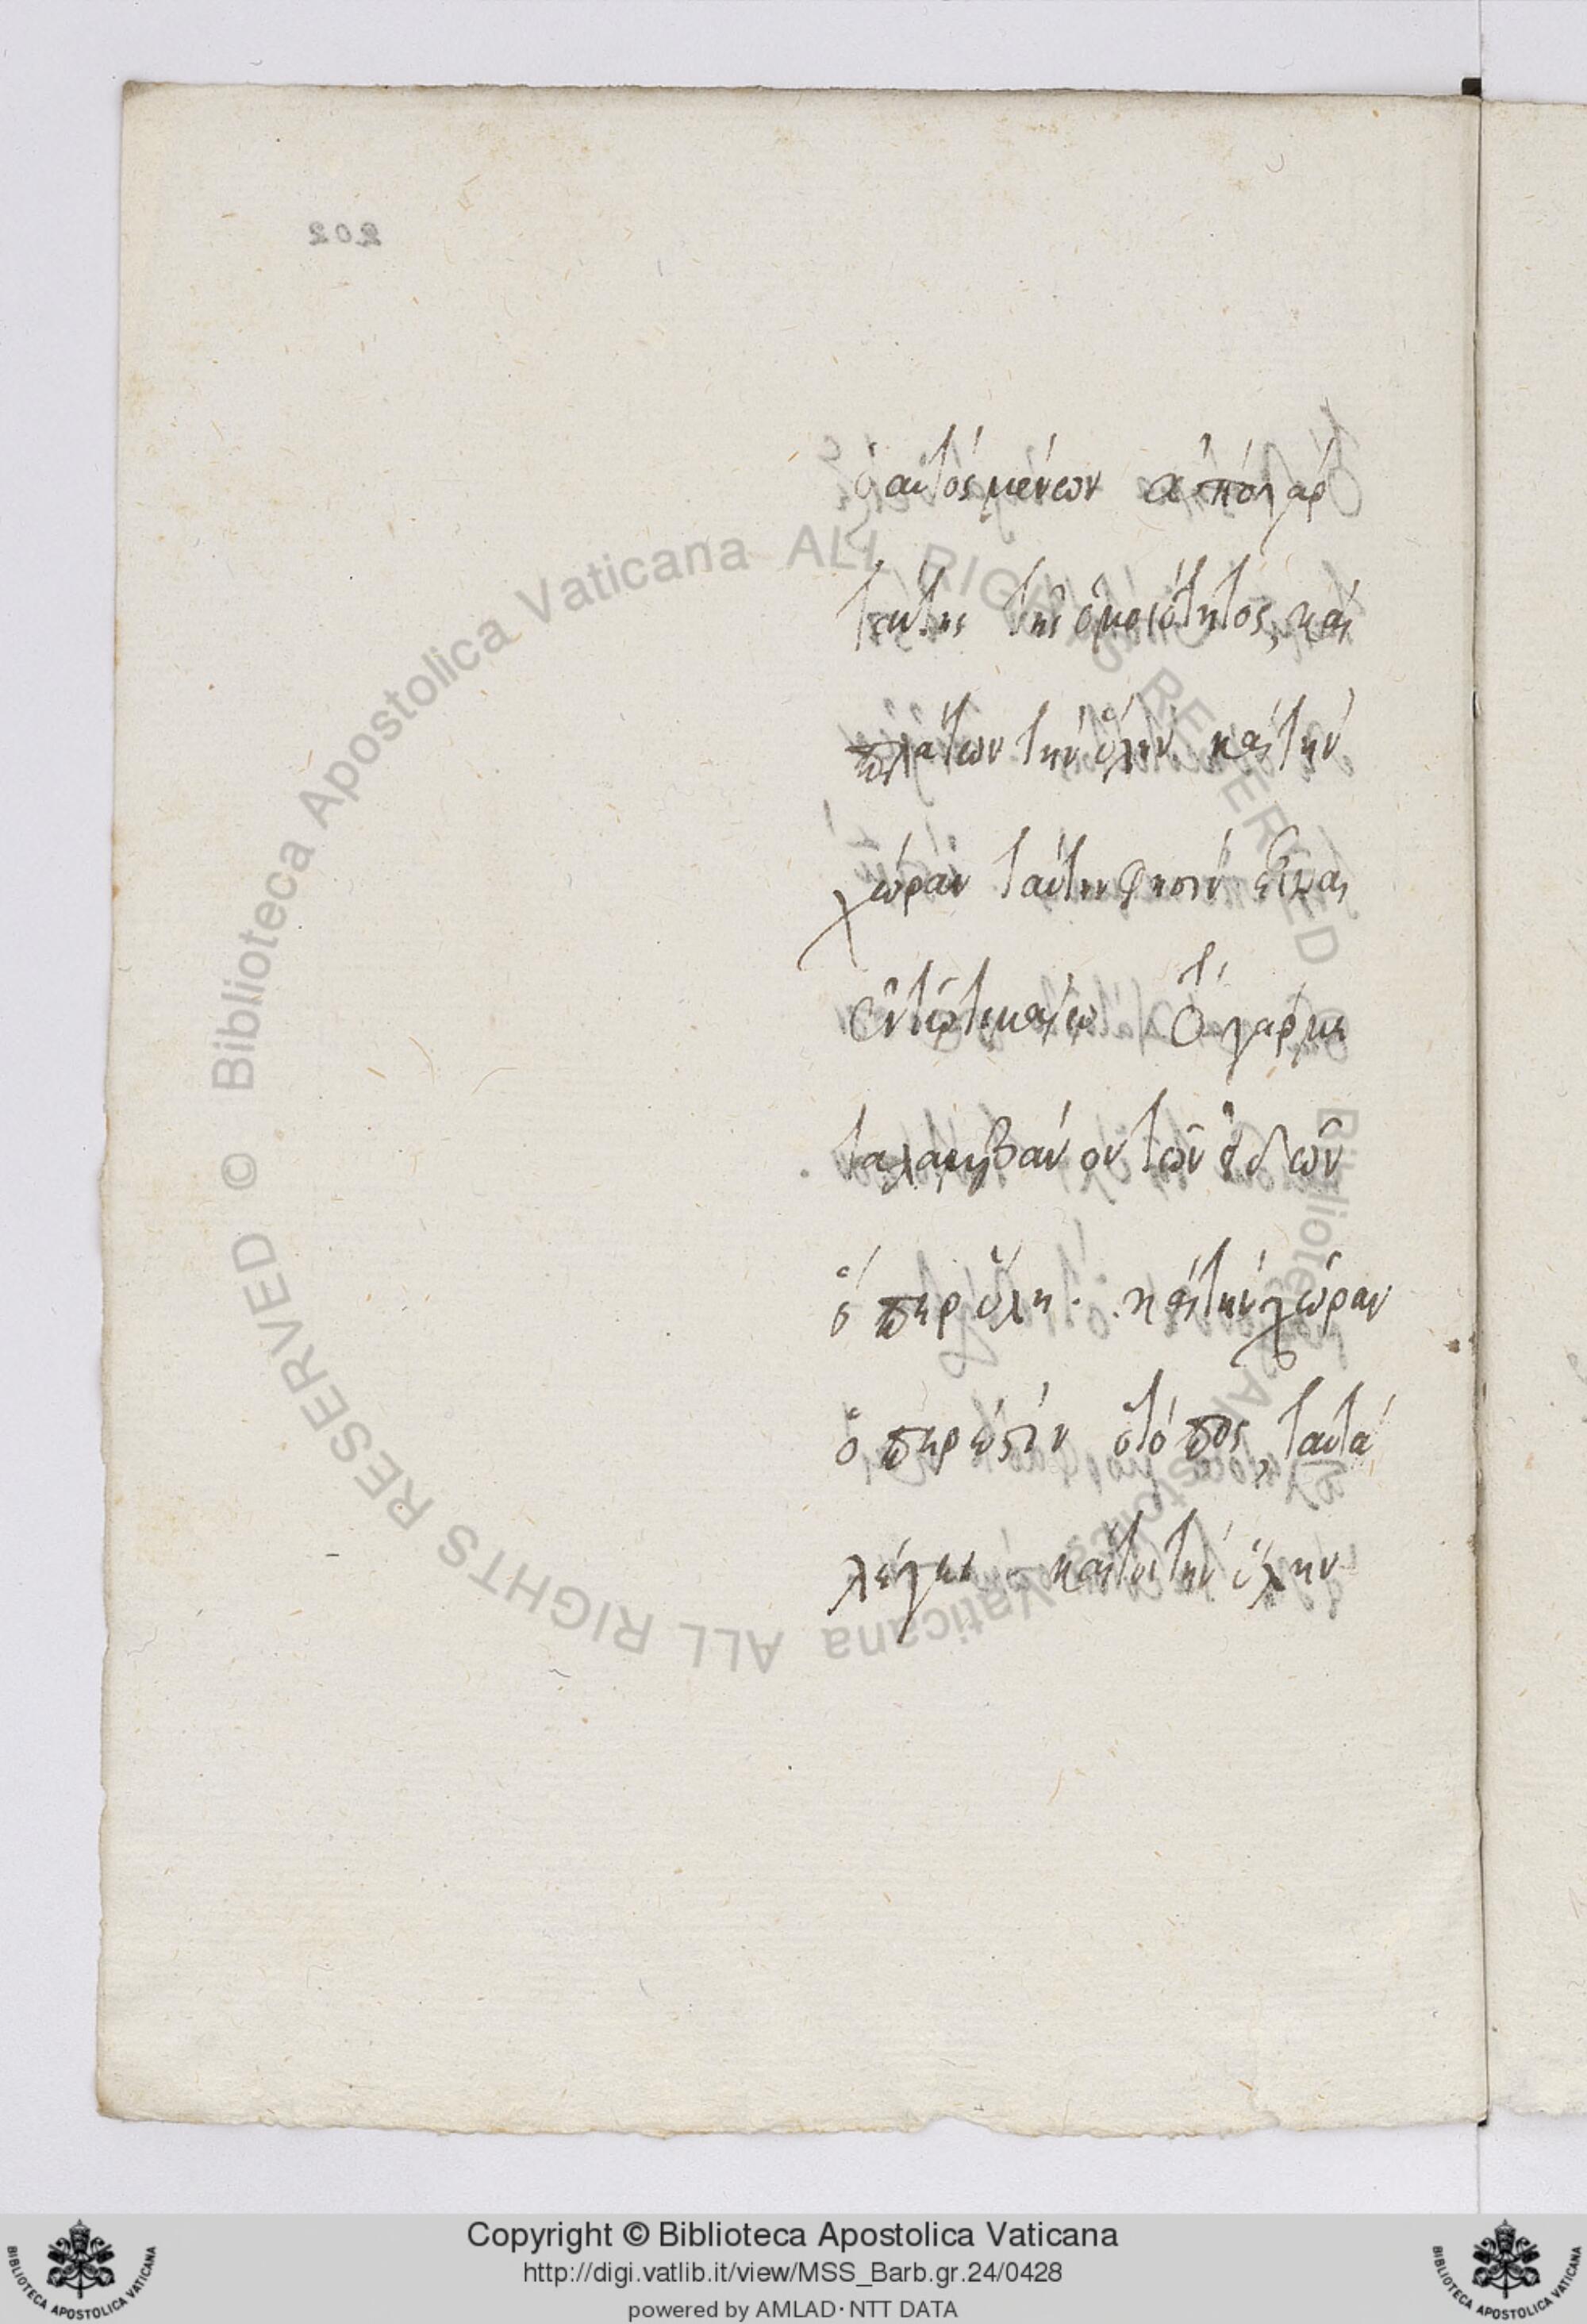 202
ὁ αὐτὸς μένων ἀπὸ γὰρ
ταύτης τῆς ὁμοιότητος, καὶ
πλάτων τὴν ὕλην καὶ τὴν
χώραν ταυτην φησιν εἶναι
ἐν τῷ τιμαίῳ Τὸ γὰρ με
ταλαμβάνον τῶν εἰδῶν
ὅπερ ὕλη. καὶ τὴν χώραν
ὅπερ ἐστὶν ὁ τόπος, ταυτὰ
λέγει καίτοι τὴν ὕλην
© Biblioteca Apostolica Vaticana ALL RIGHTS RESERVED
© Biblioteca Apostolica Vaticana ALL RIGHTS RESERVED
Copyright © Biblioteca Apostolica Vaticana
http://digi.vatlib.it/view/MSS_Barb.gr.24/0428
powered by AMLAD · NTT DATA
BIBLIOTECA APOSTOLICA VATICANA
BIBLIOTECA APOSTOLICA VATICANA